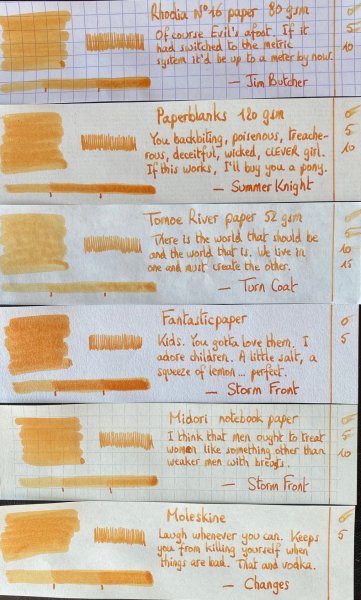 Rhodia N°16 paper 80 gsm
Of course Evil's afoot. If it
had switched to the metric
system it'd be up to a meter by now.
— Jim Butcher
0
5
10
Paperblanks 120 gsm
You backbiting, poisenous, treache-
rous, deceitful, wicked, CLEVER girl.
If this works, I'll buy you a pony.
— Summer Knight
0
5
10
Tomoe River paper 52 gsm
There is the world that should be
and the world that is. We live in
one and must create the other.
— Turn Coat
5
10
15
Fantasticpaper
Kids. You gotta love them. I
adore children. A little salt, a
squeeze of lemon... perfect.
— Storm Front
0
5
Midori notebook paper
I think that men ought to treat
women like something other than
weaker men with breasts.
— Storm Front
0
5
10
Moleskine
Laugh whenever you can. Keeps
you from killing yourself when
things are bad. That and vodka.
— Changes
0
5